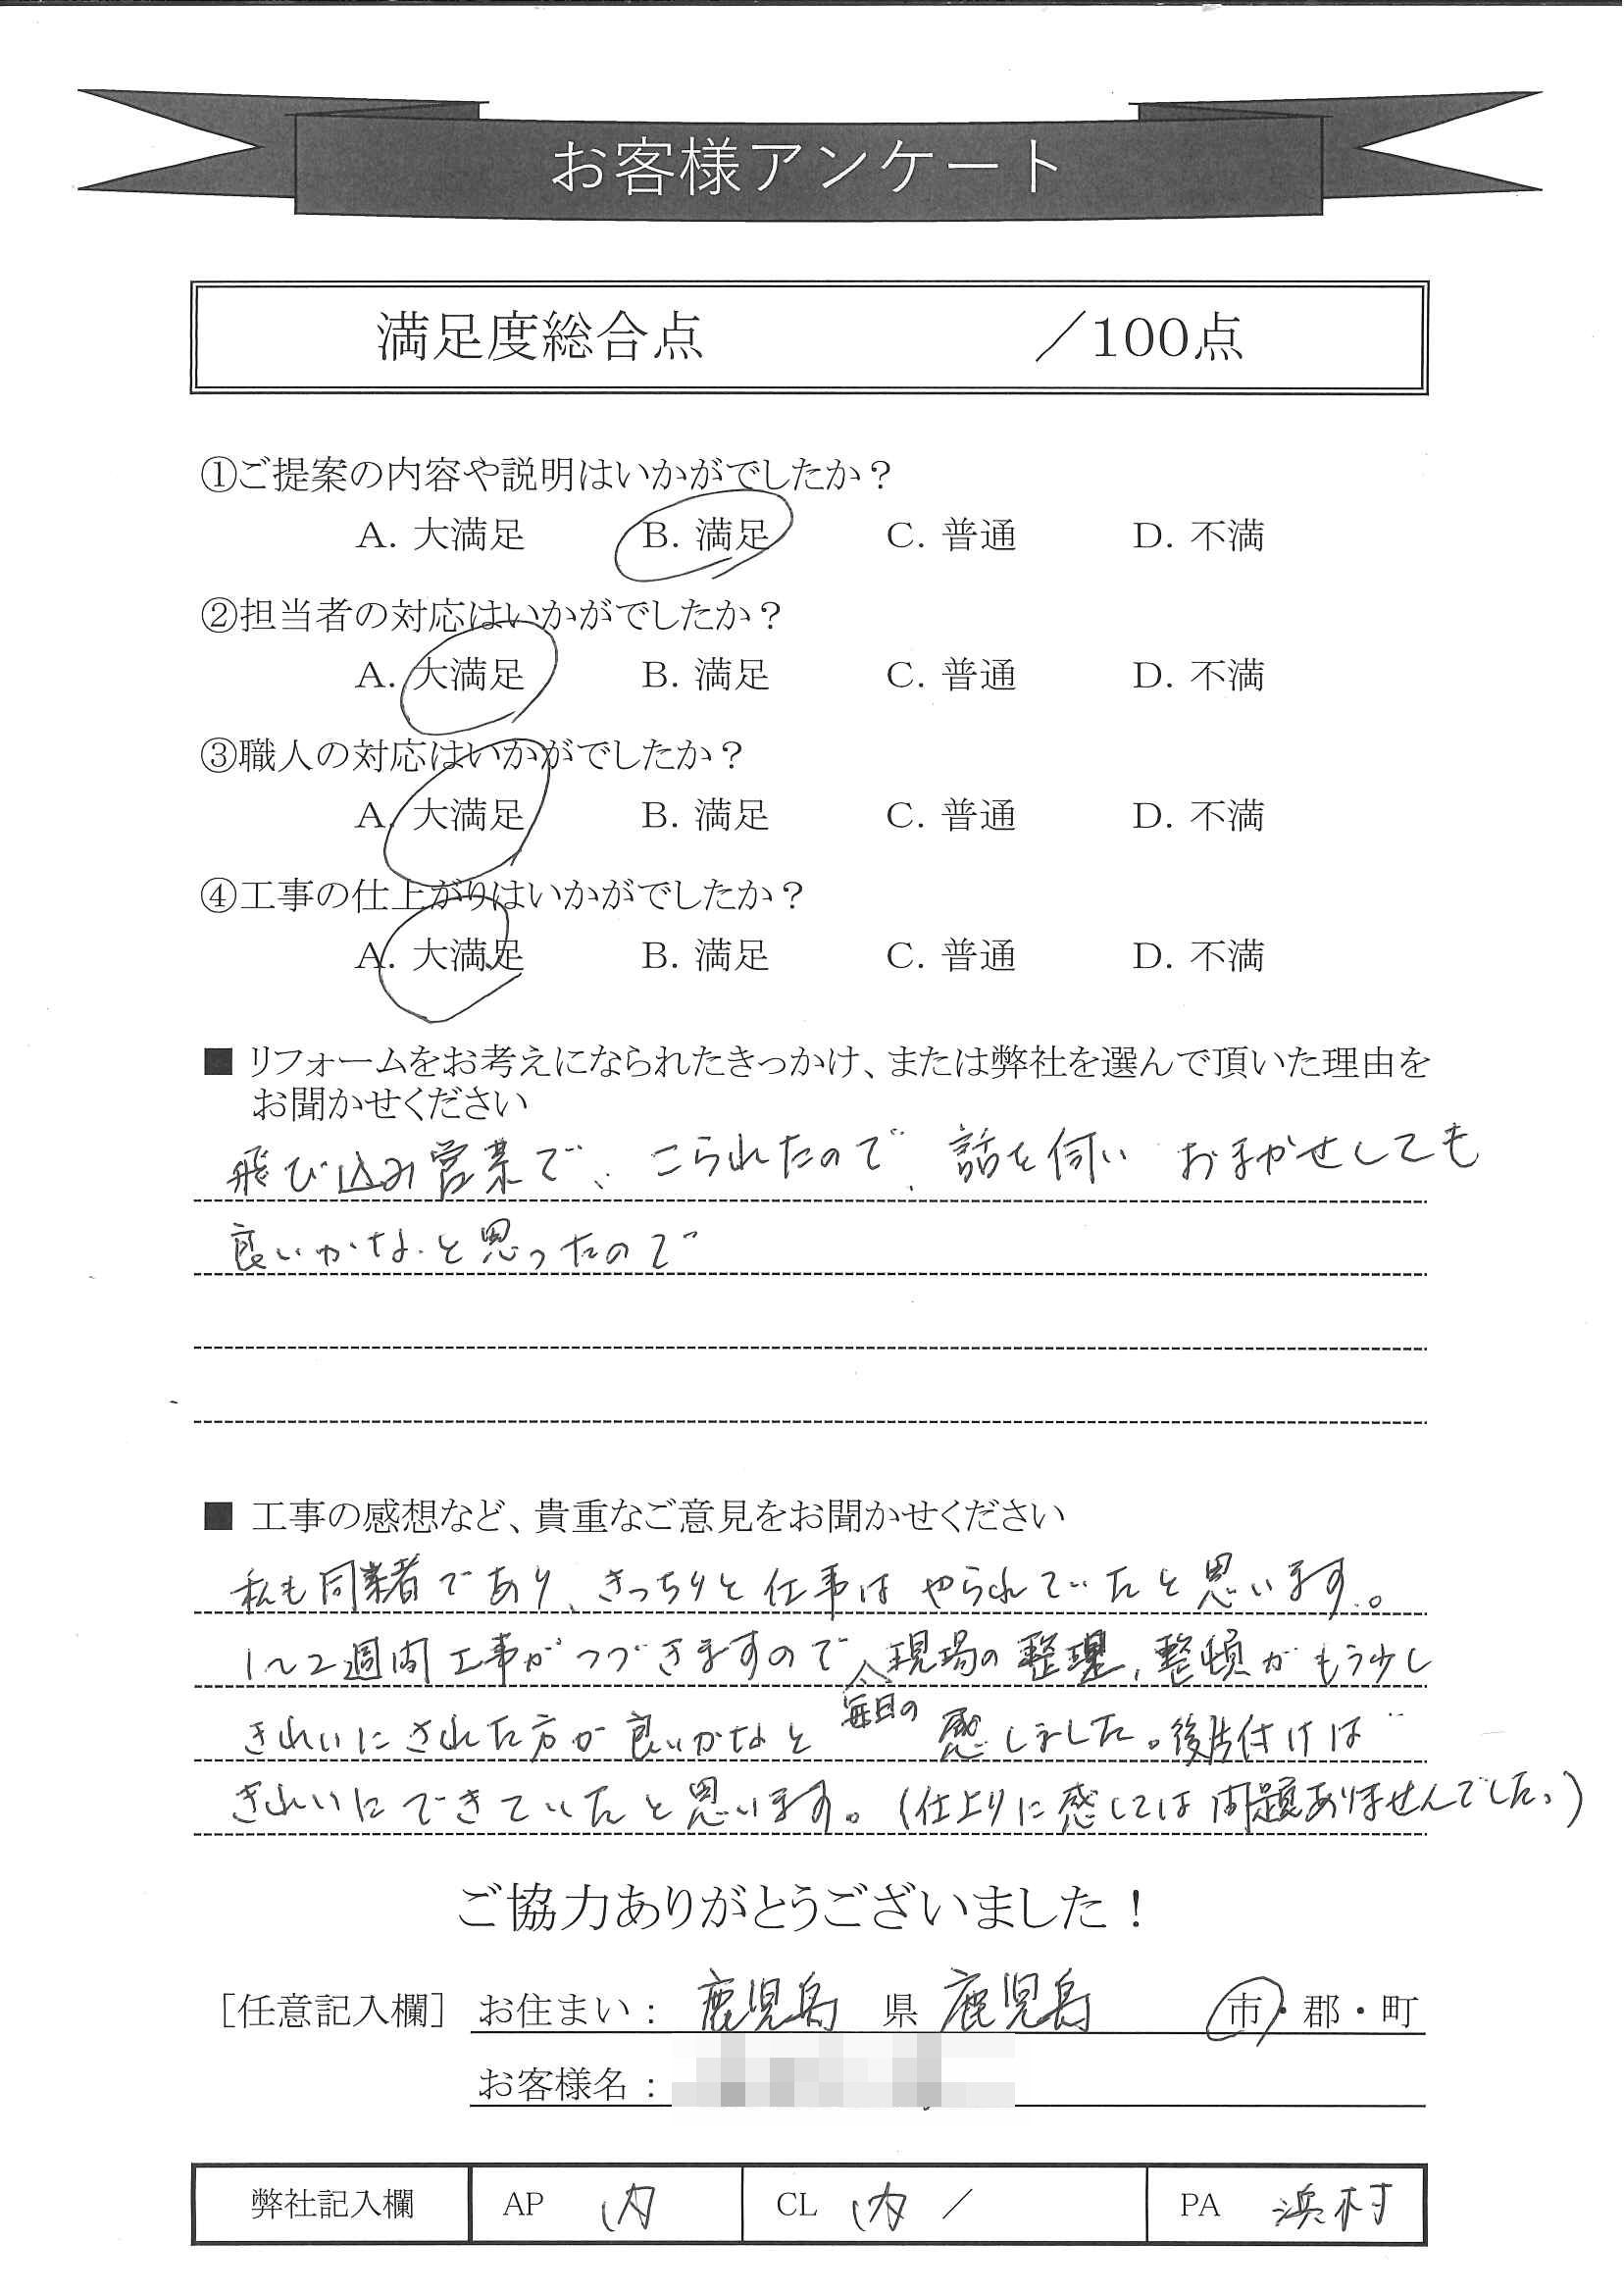 お客様アンケート
満足度総合点 ／100点
①ご提案の内容や説明はいかがでしたか？
A. 大満足 B. 満足 C. 普通 D. 不満
②担当者の対応はいかがでしたか？
A. 大満足 B. 満足 C. 普通 D. 不満
③職人の対応はいかがでしたか？
A. 大満足 B. 満足 C. 普通 D. 不満
④工事の仕上がりはいかがでしたか？
A. 大満足 B. 満足 C. 普通 D. 不満
■ リフォームをお考えになられたきっかけ、または弊社を選んで頂いた理由を
お聞かせください
飛び込み営業で、こられたので、話を伺い おまかせしても
良いかな、と思ったので
■ 工事の感想など、貴重なご意見をお聞かせください
私も同業者であり、きっちりと仕事はやられていたと思います。
1〜2週間工事がつづきますので 現場の整理、整頓がもう少し
毎日の
きれいにされた方が良いかなと 感じました。後片付けは
きれいにできていたと思います。(仕上りに感しては問題ありませんでした。)
ご協力ありがとうございました！
［任意記入欄］ お住まい： 鹿児島 県 鹿児島 市・郡・町
お客様名：
弊社記入欄 AP 内 CL 内 ／ PA 浜村